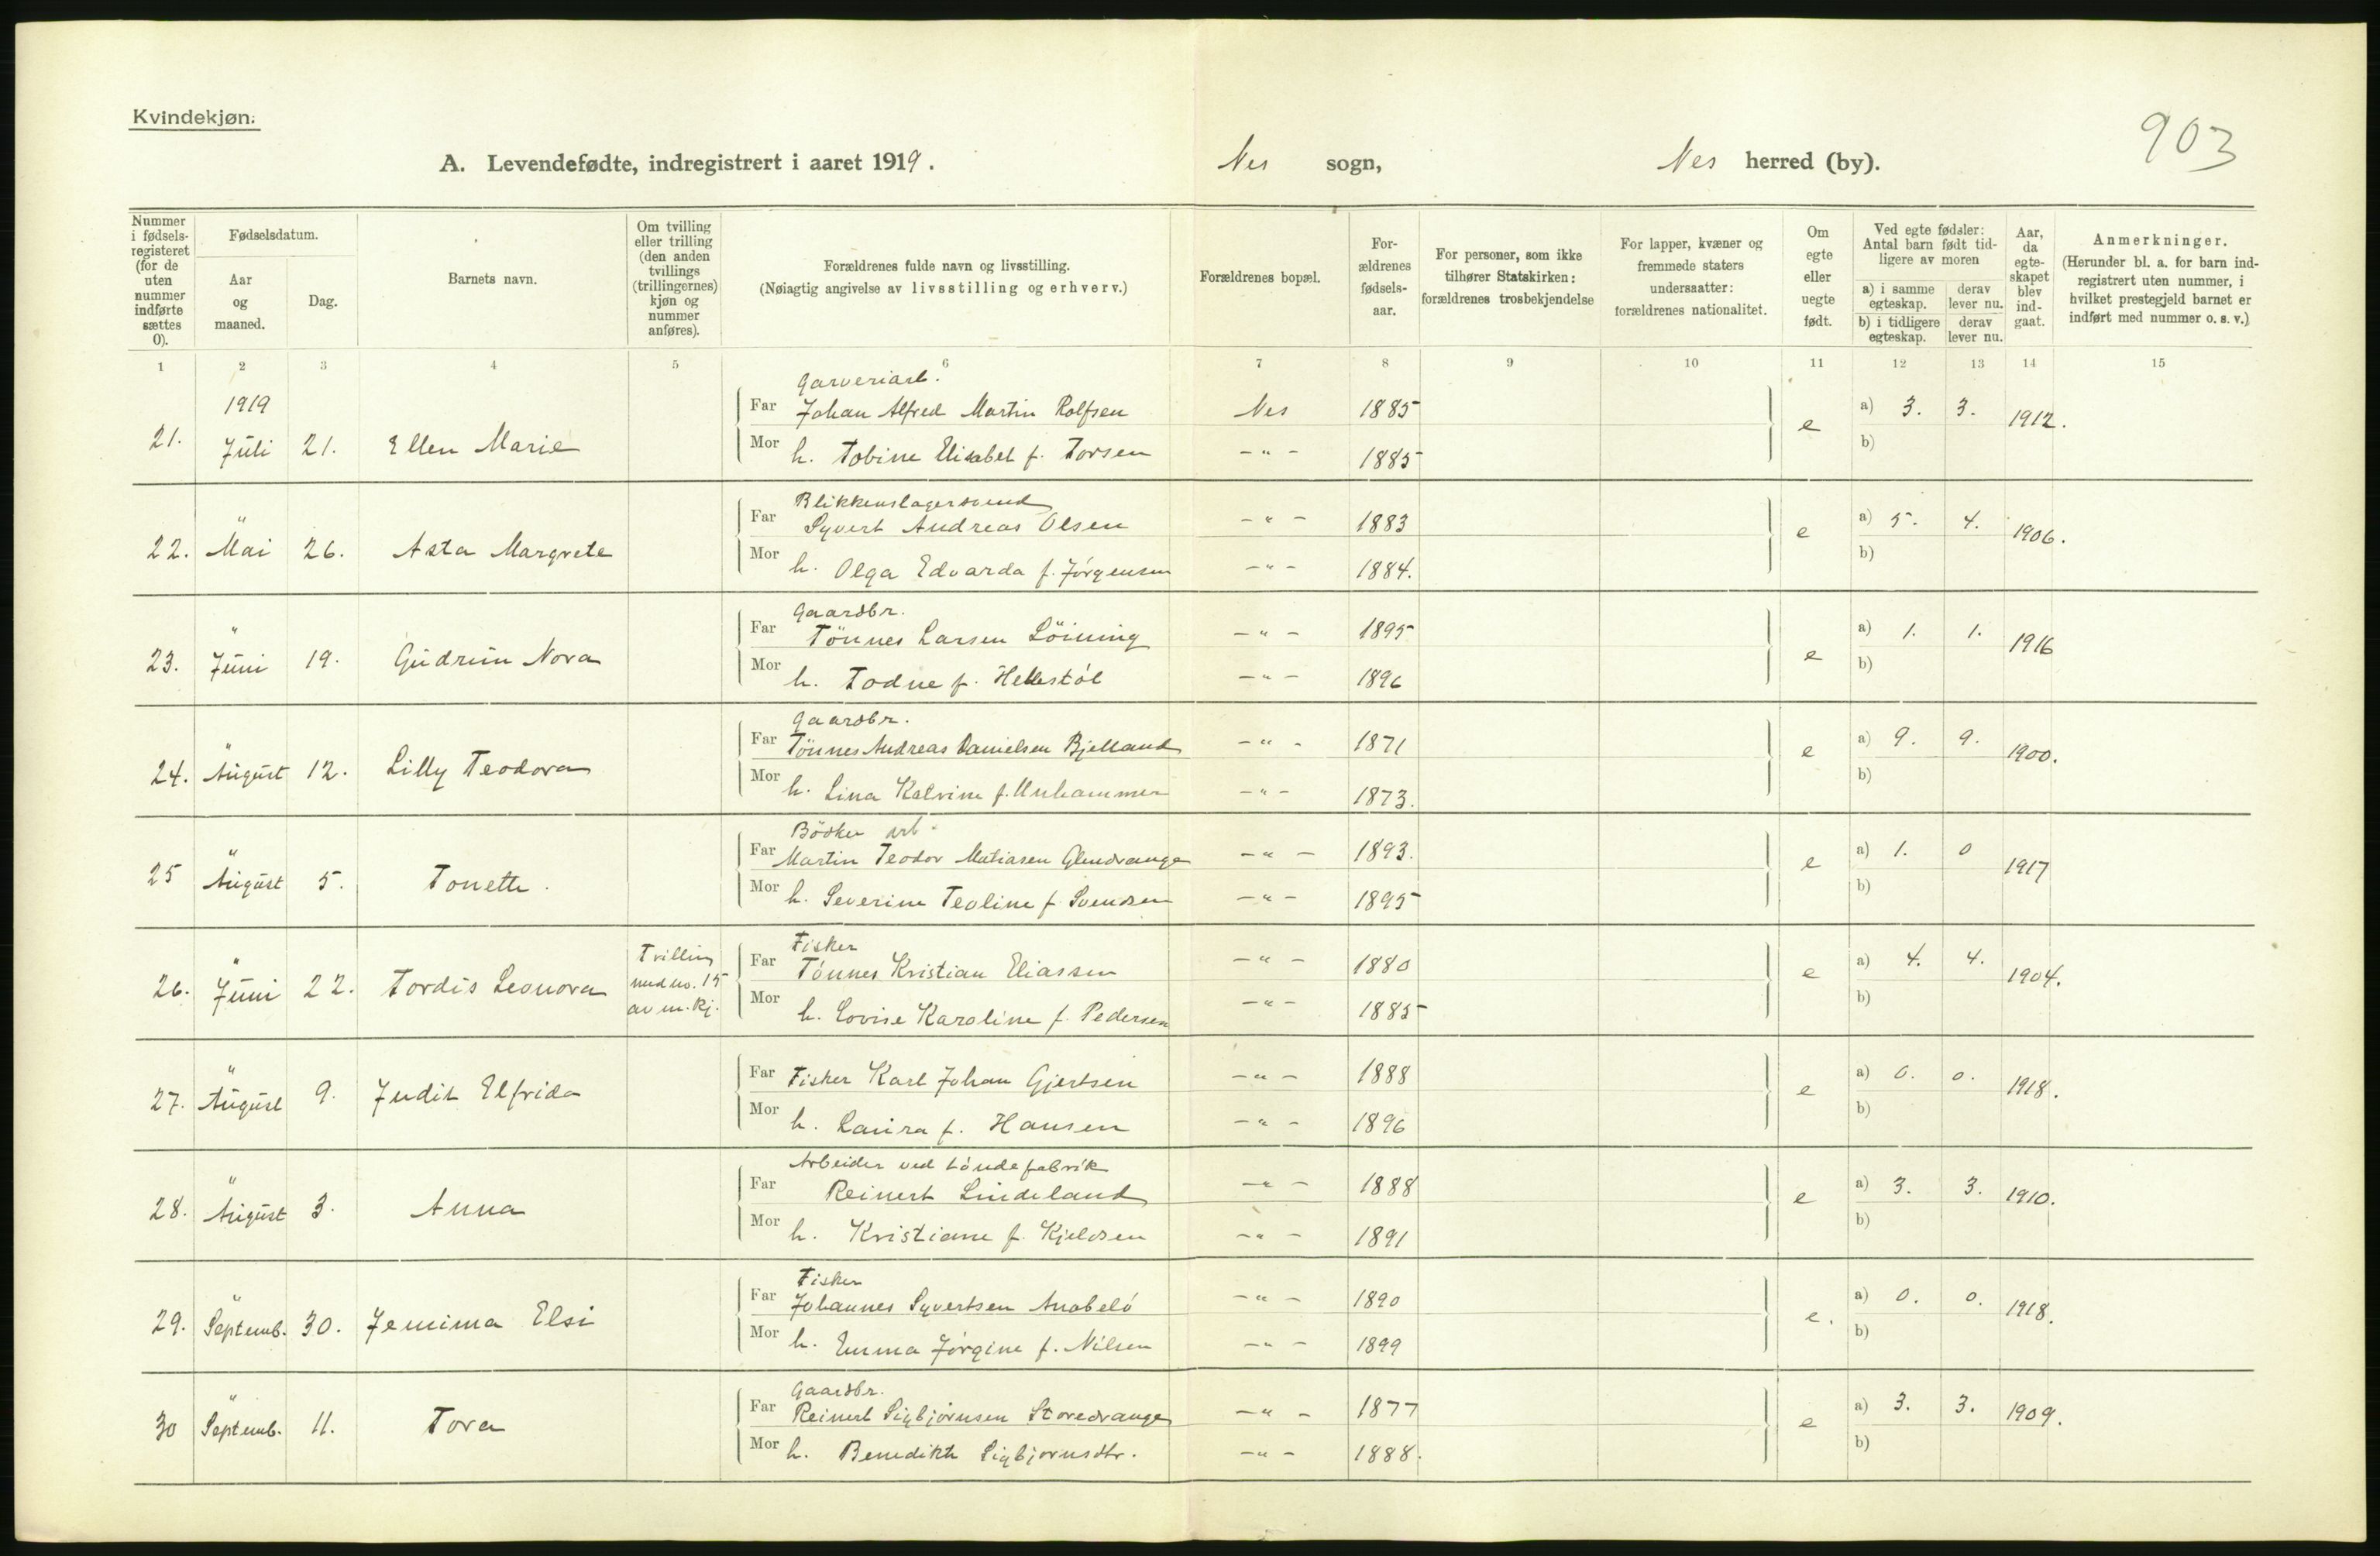 Kvindekjøn.
903
A. Levendefødte, indregistrert i aaret 1919. Nes sogn, Nes herred (by).
Nummer i fødsels-registeret (for de uten nummer indførte sættes 0).
Fødselsdatum.
Aar og maaned.
Dag.
Barnets navn.
Om tvilling eller trilling (den anden tvillings (trillingernes) kjøn og nummer anføres).
Forældrenes fulde navn og livsstilling.
(Nøiagtig angivelse av livsstilling og erhverv.)
Forældrenes bopæl.
For-ældrenes fødsels-aar.
For personer, som ikke tilhører Statskirken: forældrenes trosbekjendelse
For lapper, kvæner og fremmede staters undersaatter: forældrenes nationalitet.
Om egte eller uegte født.
Ved egte fødsler: Antal barn født tid-ligere av moren
a) i samme egteskap. derav lever nu.
b) i tidligere egteskap. derav lever nu.
Aar, da egte-skapet blev ind-gaat.
Anmerkninger.
(Herunder bl. a. for barn ind-registrert uten nummer, i hvilket prestegjeld barnet er indført med nummer o. s. v.)
1 2 3 4 5 6 7 8 9 10 11 12 13 14 15
1919
Garveriarb.
Far Johan Alfred Martin Rolfsen Nes 1885 a) 3. 3.
21. Juli 21. Ellen Marie e 1912.
Mor h. Tobine Elisabet f. Torsen -"- 1885 b)
Blikkenslagersvend
Far Syvert Andreas Olsen -"- 1883 a) 5. 4.
22. " Mai 26. Asta Margrete e 1906.
Mor h. Olga Edvarda f. Jørgensen -"- 1884. b)
Gaardbr.
Far Tönnes Larsen Löining -"- 1895 a) 1. 1.
23. " Juni 19. Gudrun Nora e 1916
Mor h. Todne f. Hellestöl -"- 1896 b)
Gaardbr.
Far Tönnes Andreas Danielsen Bjelland -"- 1871 a) 9. 9.
24. " August 12. Lilly Teodora e 1900.
Mor h. Lina Katrine f. Unhammer -"- 1873. b)
Bödker arb.
Far Martin Teodor Matiasen Glendrange -"- 1893. a) 1. 0
25 " August 5. Tonette. e 1917
Mor h. Severine Teoline f. Svendsen -"- 1895 b)
Fisker
Far Tönnes Kristian Eliassen -"- 1880 a) 4. 4.
26. " Juni 22. Tordis Leonora Tvilling med no. 15 av m. kj. e 1904.
Mor h. Lovise Karoline f. Pedersen -"- 1885 b)
Far Fisker Karl Johan Gjertsen -"- 1888 a) 0. 0.
27. " August 9. Judit Elfrida e 1918.
Mor h. Laura f. Hansen -"- 1896 b)
Arbeider ved tøndefabrik
Far Reinert Lindeland -"- 1888 a) 3. 3.
28. " August 3. Anna e 1910.
Mor h. Kristiane f. Kjeldsen -"- 1891 b)
Fisker
Far Johannes Syvertsen Anabelö -"- 1890 a) 0. 0.
29. " Septemb. 30. Jemima Elsi e. 1918.
Mor h. Emma Jörgine f. Nilsen -"- 1899 b)
Gaardbr.
Far Reinert Sigbjørnsen Storedrange -"- 1877 a) 3. 3.
30 " Septemb. 11. Tora e 1909.
Mor h. Benedikte Sigbjørnsdtr. -"- 1888. b)